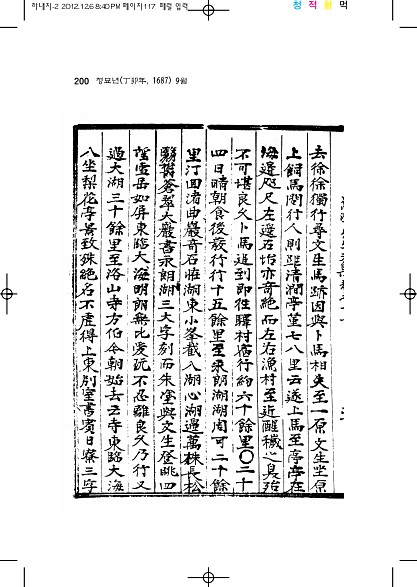 하내지-2 2012.12.6 8:40 PM 페이지117 제광 입력
청 적 황 먹
200 정묘년(丁卯年, 1687) 9월
去徐徐獨行尋文生馬跡因與卜馬相失至一原文生坐原
上飼馬問行人則距淸澗亭菫七八里云遂上馬至亭亭在
海邊咫尺左邊石坮亦奇絶而左右漁村至近醒穢之臭殆
不可堪良久卜馬追到即往驛村宿行約六十餘里〇二十
四日晴朝食後發行行十五餘里至永朗湖湖周可二十餘
里汀回渚曲巖奇石壯湖東小峯截入湖心湖邊萬株長松
翳葱翠大巖書永朗湖三大字刻而朱塡與文生登眺四
望雪岳如屛東臨大海明朗無比愛玩不忍離良久乃行又
過大湖三十餘里至洛山寺方伯今朝始去云寺東臨大海
八坐梨花亭景致殊絶名不虛得上東別室書賓日寮三字